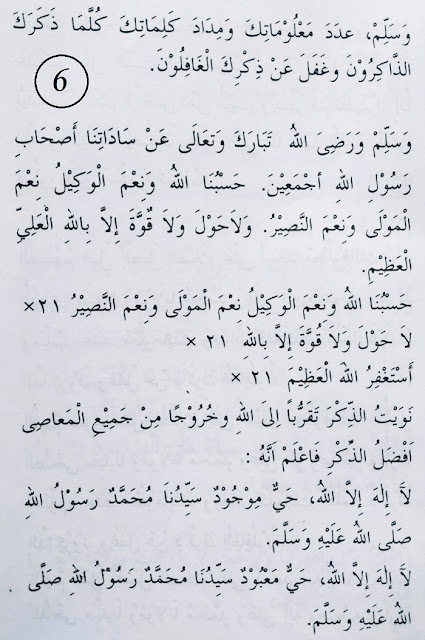 وَسَلِّمْ، عدَدَ مَعْلُوْمَاتِكَ وَمِدَادَ كَلِمَاتِكَ كُلَّمَا ذَكَرَكَ
الذَّاكِرُوْنَ وغَفَلَ عَنْ ذِكْرِكَ الْغَافِلُوْنَ.
6
وَسَلِّمْ وَرَضِىَ اللهُ تَبَارَكَ وَتَعَالَى عَنْ سَادَاتِنَا أَصْحَابِ
رَسُوْلِ اللهِ أجْمَعِيْنَ. حَسْبُنَا اللهُ وَنِعْمَ الْوَكِيْلُ نِعْمَ
الْمَوْلَى وَنِعْمَ النَّصِيْرُ. وَلاَحَوْلَ وَلاَ قُوَّةَ إلاَّ بِاللهِ الْعَلِيِّ
الْعَظِيْمِ.
حَسْبُنَا اللهُ وَنِعْمَ الْوَكِيْلُ نِعْمَ الْمَوْلَى وَنِعْمَ النَّصِيْرُ ٢١×
لاَ حَوْلَ وَلاَ قُوَّةَ إلاَّ بِاللهِ ٢١ ×
أَسْتَغْفِرُ اللهَ الْعَظِيْمَ ٢١ ×
نَوَيْتُ الذِّكْرَ تَقَرُّباً اِلَى اللهِ وخُرُوْجًا مِنْ جَمِيْعِ الْمَعَاصِى
اَفْضَلُ الذِّكْرِ فَاعْلَمْ اَنَّهُ :
لاَ إلهَ إلاَّ اللهُ، حَيٌّ مَوْجُوْدٌ سَيِّدُنَا مُحَمَّدٌ رَسُوْلُ اللهِ
صَلَّى اللهُ عَلَيْهِ وَسَلَّمَ.
لاَ إلهَ إلاَّ اللهُ، حَيٌّ مَعْبُوْدٌ سَيِّدُنَا مُحَمَّدٌ رَسُوْلُ اللهِ صَلَّى
اللهُ عَلَيْهِ وَسَلَّمَ.